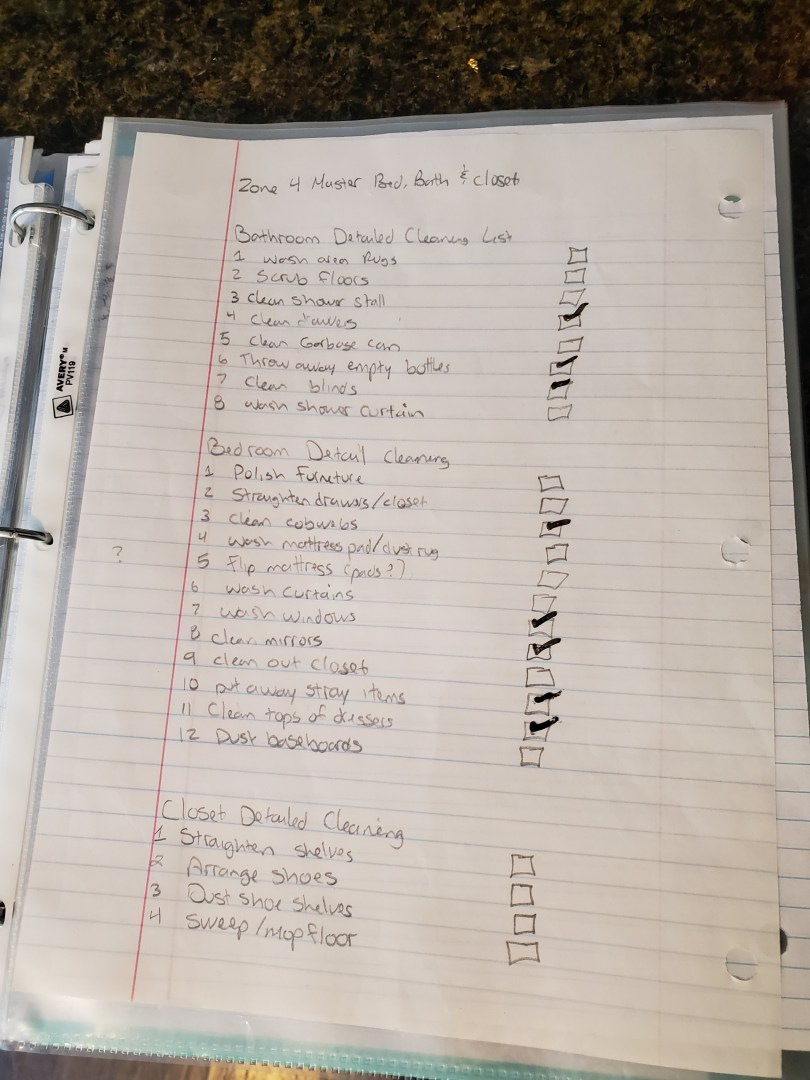 Zone 4 Master Bed, Bath & closet
Bathroom Detailed Cleaning List
1 wash area Rugs
2 Scrub floors
3 Clean shower stall
4 Clean
5 Clean Garbage can
6 Throw away empty bottles
7 Clean blinds
8 wash shower curtain
Bedroom Detail Cleaning
1 Polish Furneture
2 Straughten drawers/closet
3 Clean cobwebs
4 wash mattress pad/dust rug
? 5 Flip mattress (pads?)
6 wash curtains
7 wash windows
8 clean mirrors
9 clean out closet
10 put away stray items
11 Clean tops of dressers
12 Dust baseboards
Closet Detailed Cleaning
1 Straighten shelves
2 Arrange shoes
3 Dust shoe shelves
4 Sweep/mop floor
AVERY
PV119